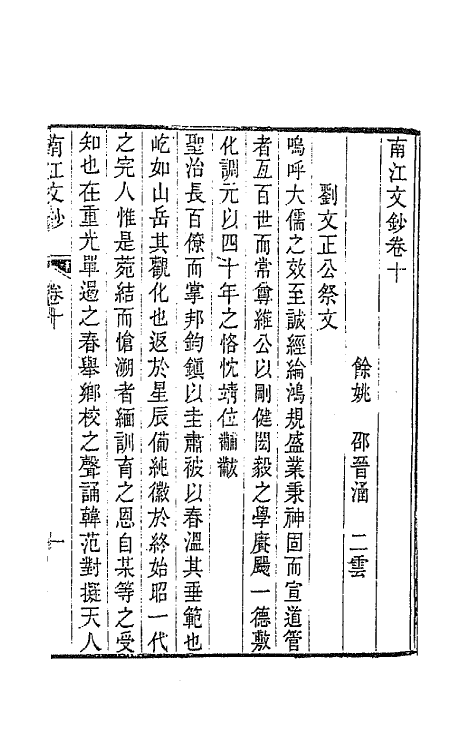 南江文鈔卷十
餘姚 邵晉涵 二雲
劉文正公祭文
嗚呼大儒之效至誠經綸鴻規盛業秉神固而宣道管
者亙百世而常尊維公以剛健閎毅之學賡颺一德敷
化調元以四十年之恪忱靖位黼黻
聖治長百僚而掌邦鈞鎮以圭肅被以春溫其垂範也
屹如山岳其觀化也返於星辰備純徽於終始昭一代
之完人惟是菀結而愴溯者緬訓育之恩自某等之受
知也在重光單遏之春舉鄉校之聲誦韓范對擬天人
南江文鈔 卷十 一